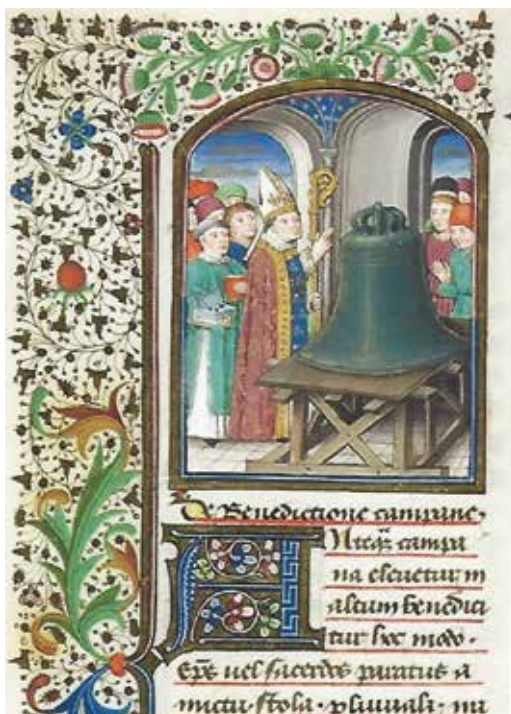 De Benedictione campane.
Anteq̃ campa
na eleuetur in
altum benedici
tur hoc modo.
Ep̃s uel sacerdos paratus a
mictu. stola. pluuiali. mi